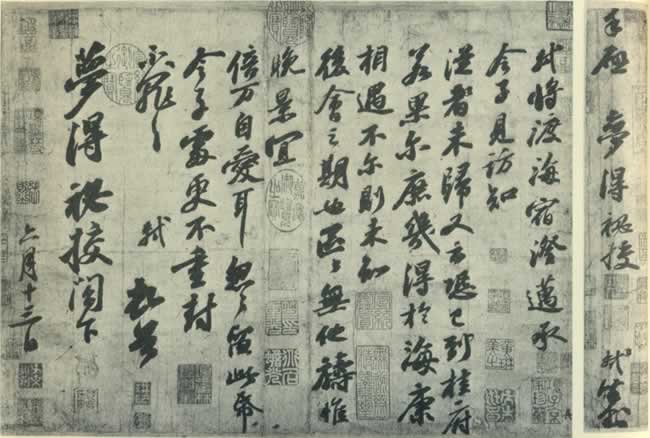 手啟 夢得祕校 軾封
軾將渡海宿澄邁承
令子見訪知
從者未歸又云恐已到桂府
若果尔庶幾得於海康
相遇不尔則未知
後會之期也區々無他禱惟
晚景宜
倍万自愛耳忽々留此帋
令子處更不重封
不罪々
軾 頓首
夢得祕校閣下
六月十三日